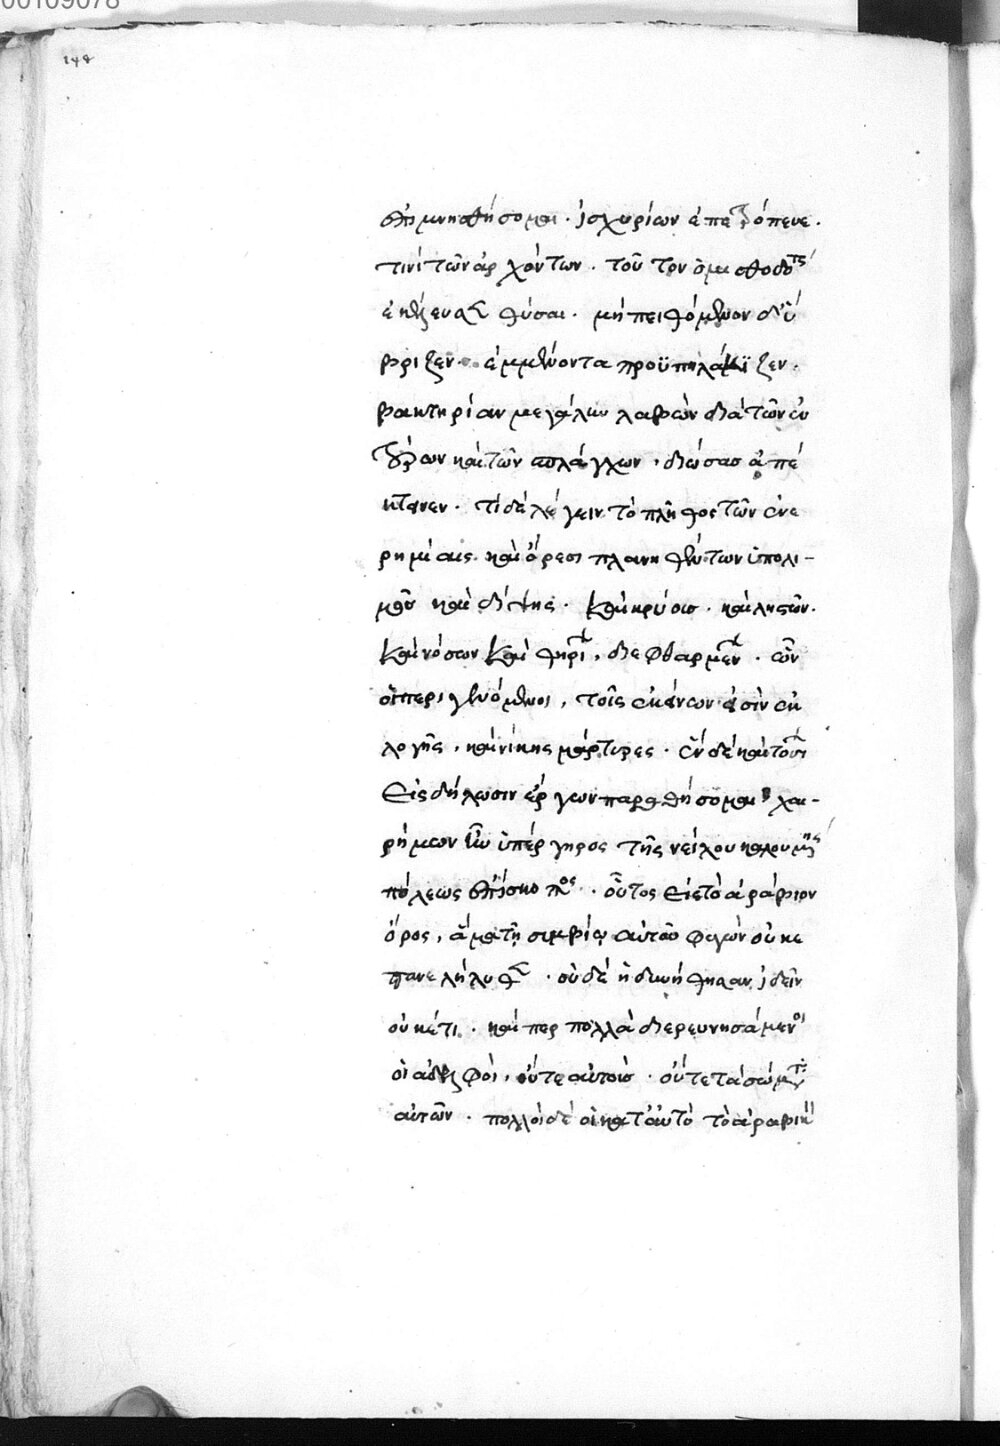 00109078
148
ἐπιμνησθήσομαι. ἰσχυρίων ἐπετρόπευε.
τινὶ τῶν ἀρχόντων. τοῦτον ὁ μισθοδότης
ἐκέλευσε θύσαι. μὴ πειθόμενον δὲ ὕ
βριζεν. ἐμμένοντα προϋπηλάκιζεν.
βακτηρίαν μεγάλην λαβὼν διὰ τῶν ἐν
τέρων καὶ τῶν σπλάγχων, διώσας ἀπέ
κτεινεν. τί δὲ λέγειν τὸ πλῆθος τῶν ἐν ἐ
ρημίαις καὶ ὄρεσι πλανηθέντων ὑπὸ λι-
μοῦ καὶ δίψης. καὶ κρύους. καὶ ληστῶν.
καὶ νόσων καὶ θηρίων, διεφθαρμένων. ὧν
οἱ περιγενόμενοι, τοῖς ἐκείνων εἰσὶν ἐκ
λογῆς, καὶ νίκης μάρτυρες. ἓν δὲ καὶ τούτων
εἰς δήλωσιν ἔργων παραθήσομαι χαι-
ρήμων ἦν ὑπέργηρος τῆς νείλου καλουμένης
πόλεως ἐπίσκοπος. οὗτος εἰς τὸ ἀράβιον
ὄρος, ἅμα τῇ συμβίῳ αὐτοῦ φυγὼν οὐκ ἐ
πανελήλυθεν. οὐδὲ ἠδυνήθησαν ἰδεῖν
οὐκέτι. καίπερ πολλὰ διερευνησάμενοι
οἱ ἀδελφοὶ, οὔτε αὐτοὺς. οὔτε τὰ σώματα
αὐτῶν. πολλοὶ δὲ οἱ κατ' αὐτὸ τὸ ἀραβικὸν